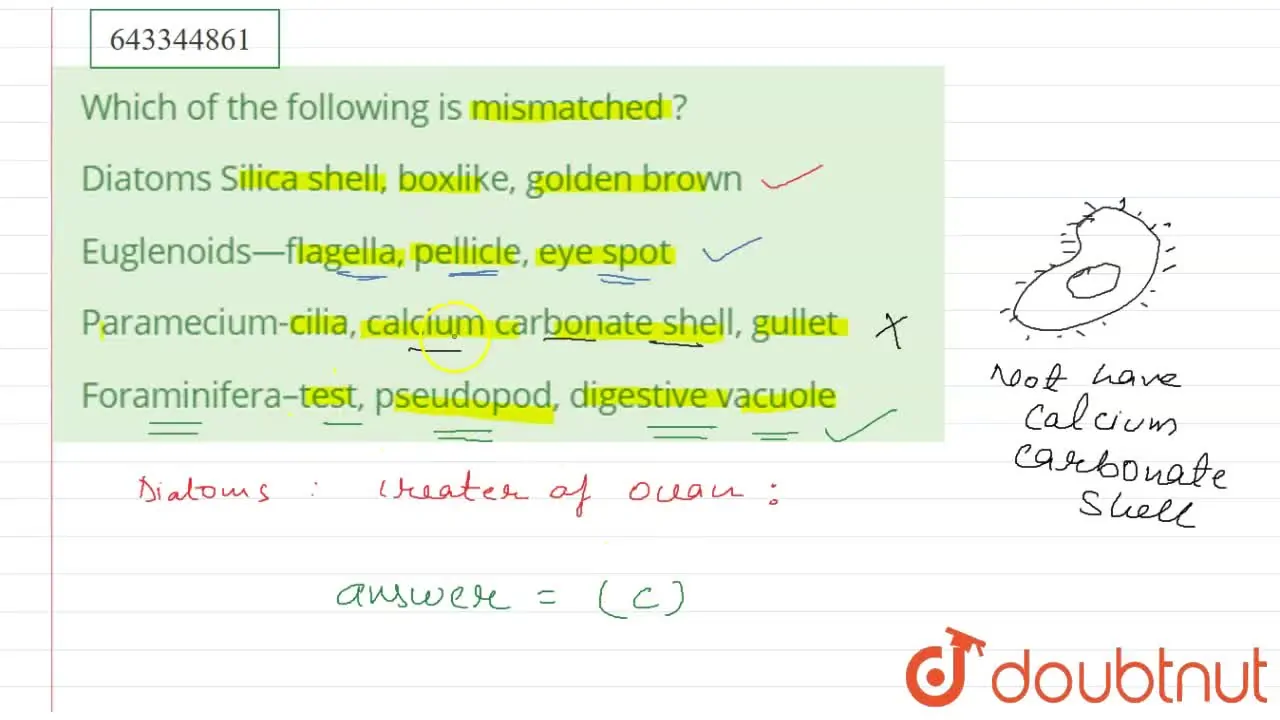 643344861
Which of the following is mismatched ?
Diatoms Silica shell, boxlike, golden brown
Euglenoids—flagella, pellicle, eye spot
Paramecium-cilia, calcium carbonate shell, gullet
Foraminifera–test, pseudopod, digestive vacuole
Not have
calcium
carbonate
shell
Diatoms : creater of ocean :
answer = (c)
doubtnut